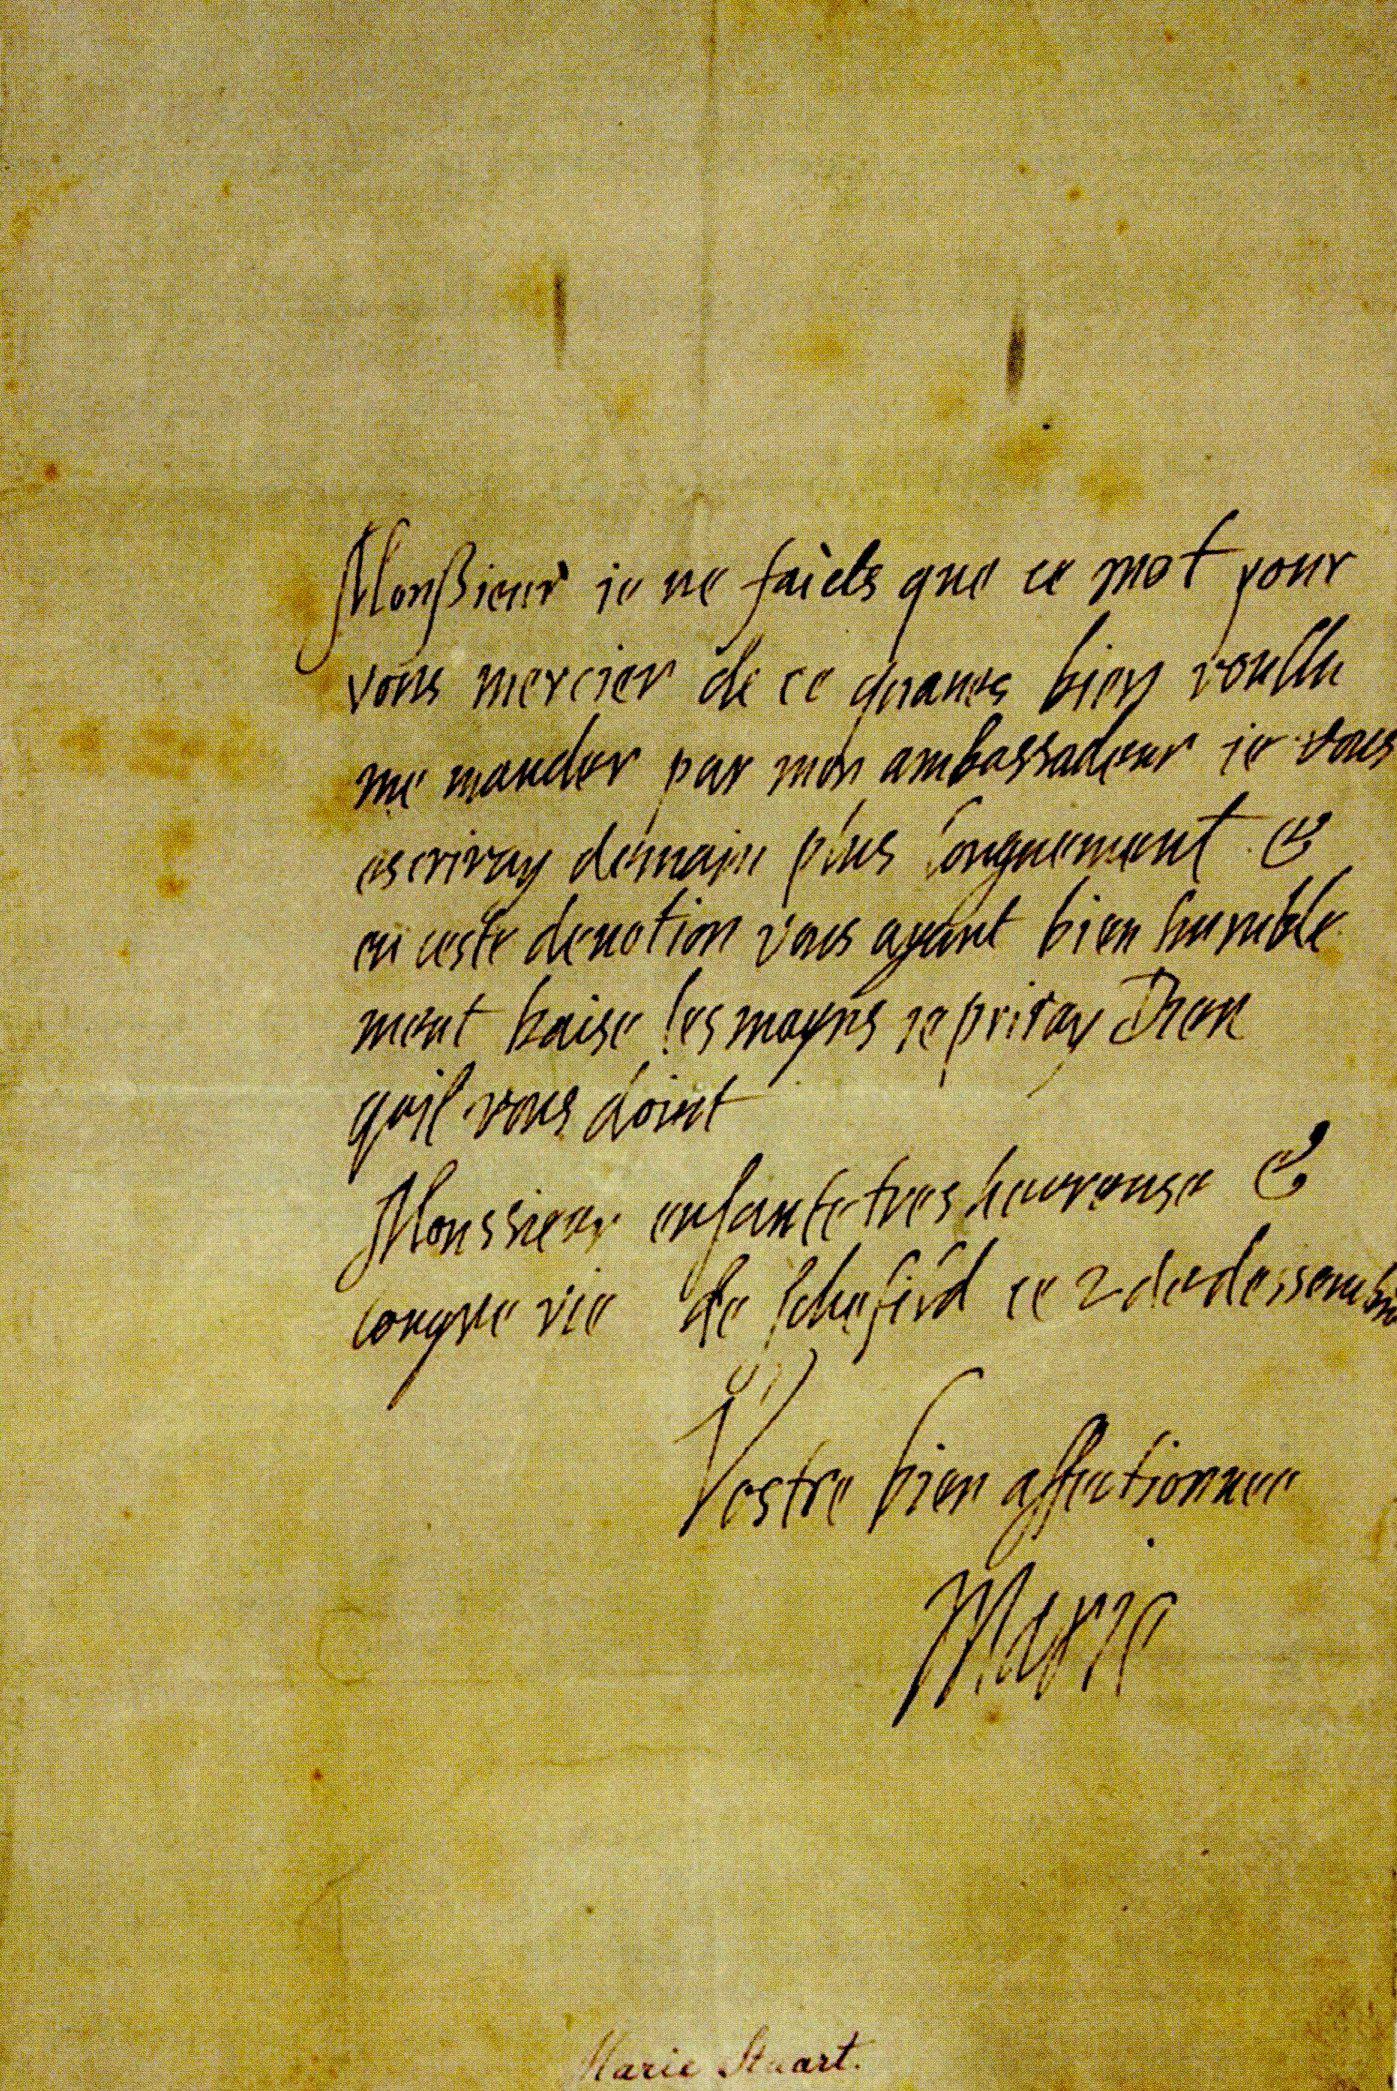 Monssieur ie ne faicts que ce mot pour
vous mercier de ce quaues bien voullu
me mander par mon ambassadeur ie vous
escriray demain plus longuemant &
en ceste deuotion vous ayant bien humble
ment baise les mayns ie priray Dieu
quil vous doint
Monssieur en sante tres heureuse &
longue vie de schefild ce 2 de dessembre
Vostre bien affectionnee
Marie
Marie Stuart.